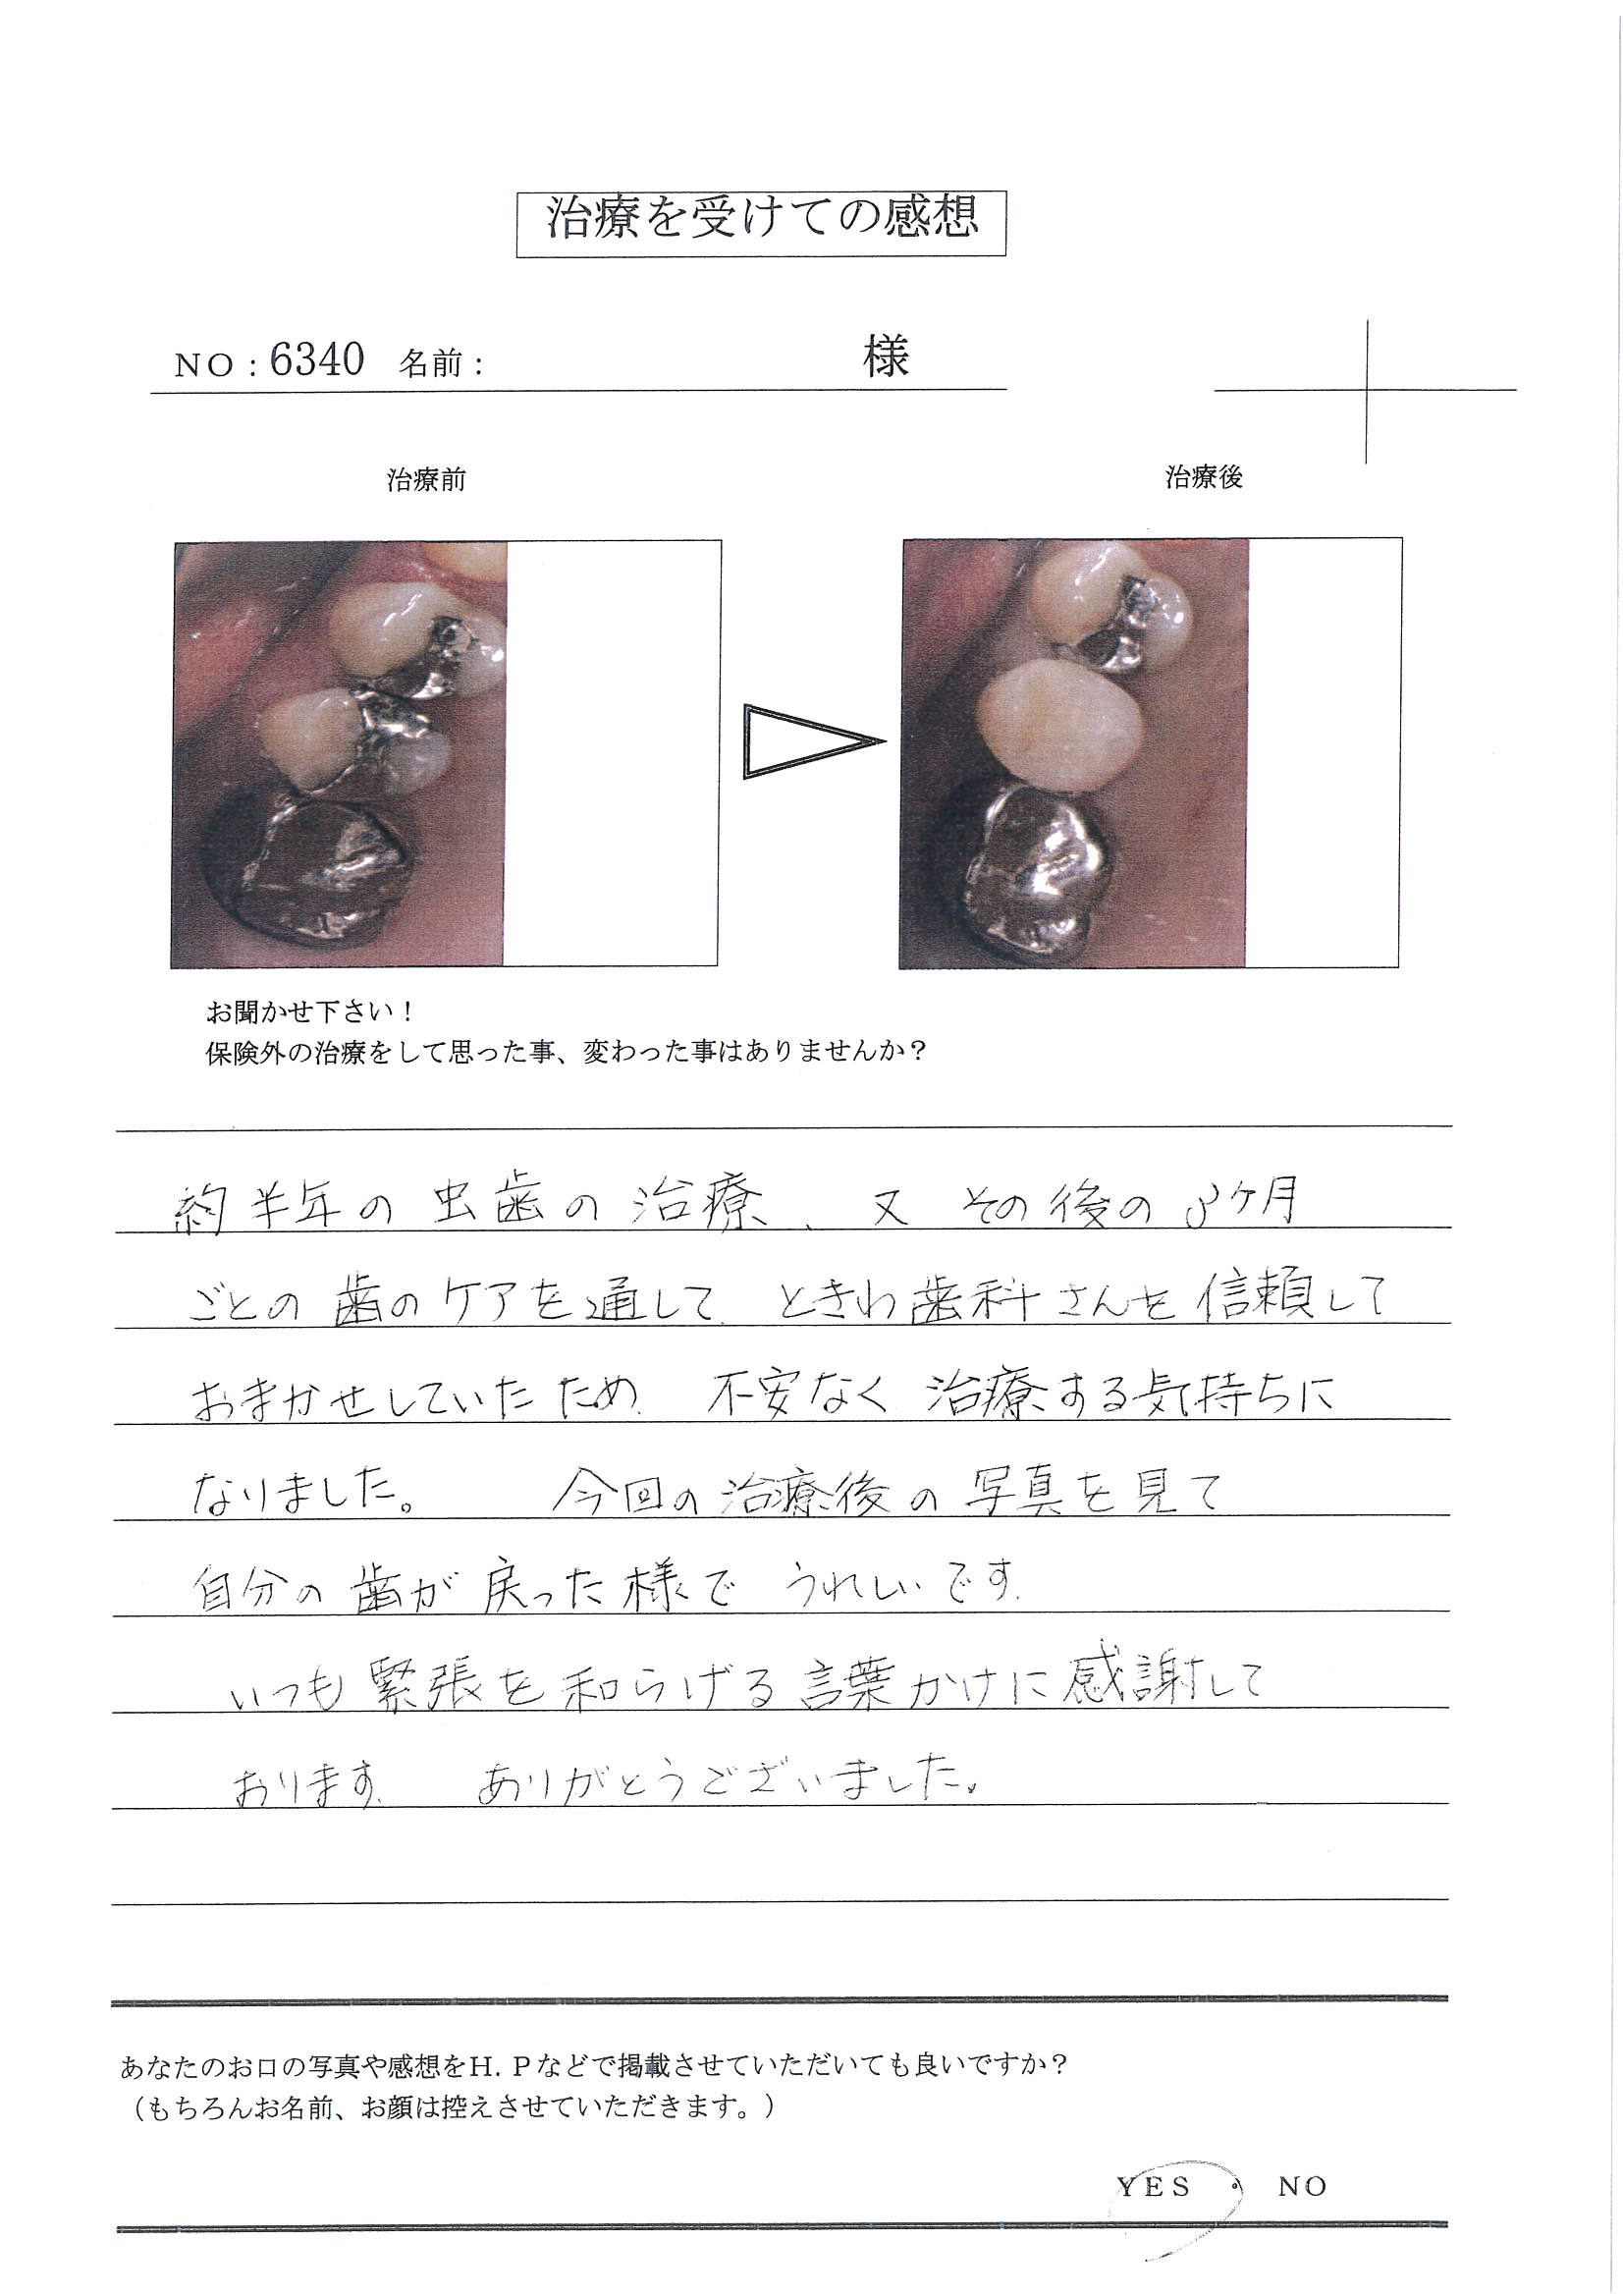 治療を受けての感想
NO：6340 名前： 様
治療前
治療後
お聞かせ下さい！
保険外の治療をして思った事、変わった事はありませんか？
約半年の虫歯の治療、又その後の3ケ月
ごとの歯のケアを通して、ときわ歯科さんを信頼して
おまかせしていたため、不安なく治療する気持ちに
なりました。 今回の治療後の写真を見て
自分の歯が戻った様でうれしいです。
いつも緊張を和らげる言葉かけに感謝して
おります。 ありがとうございました。
あなたのお口の写真や感想をH.Pなどで掲載させていただいても良いですか？
（もちろんお名前、お顔は控えさせていただきます。）
YES ・ NO